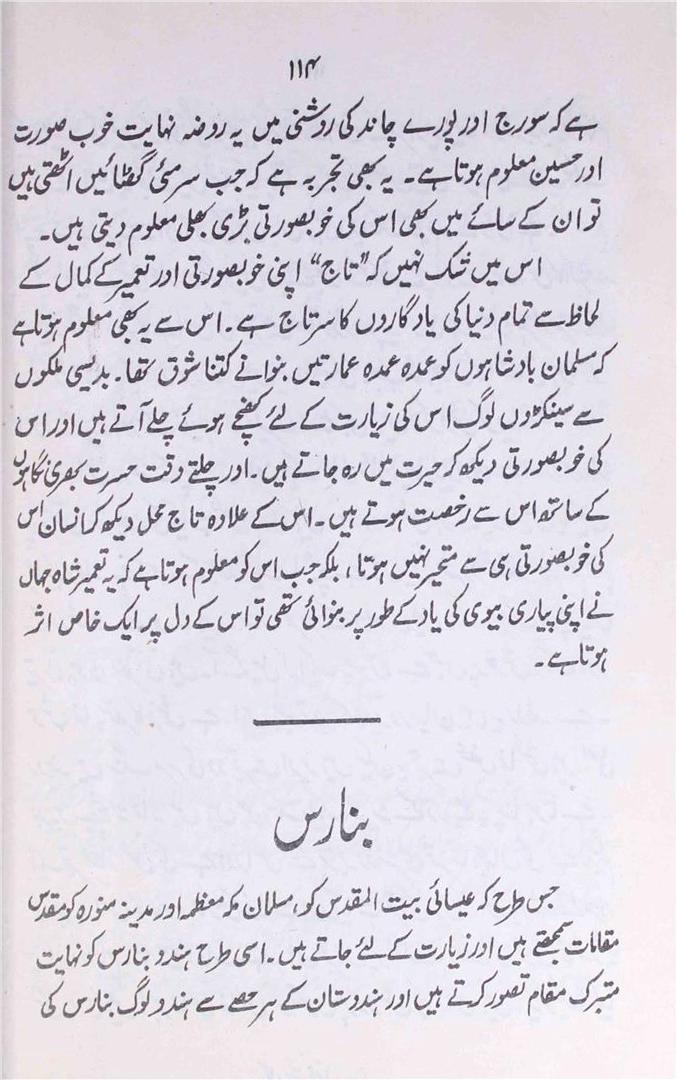 ۱۱۴
ہے کہ سورج اور پورے چاند کی روشنی میں یہ روضہ نہایت خوب صورت
اور حسین معلوم ہوتا ہے۔ یہ بھی تجربہ ہے کہ جب سرمئی گھٹائیں اٹھتی ہیں
تو ان کے سائے میں بھی اس کی خوبصورتی بڑی بھلی معلوم دیتی ہیں۔
اس میں شک نہیں کہ ”تاج“ اپنی خوبصورتی اور تعمیر کے کمال کے
لحاظ سے تمام دنیا کی یادگاروں کا سرتاج ہے۔ اس سے یہ بھی معلوم ہوتا ہے
کہ مسلمان بادشاہوں کو عمدہ عمدہ عمارتیں بنوانے کتنا شوق تھا۔ بدیسی ملکوں
سے سینکڑوں لوگ اس کی زیارت کے لئے کھنچے ہوئے چلے آتے ہیں اور اس
کی خوبصورتی دیکھ کر حیرت میں رہ جاتے ہیں۔ اور چلتے وقت حسرت بھری نگاہوں
کے ساتھ اس سے رخصت ہوتے ہیں۔ اس کے علاوہ تاج محل دیکھ کر انسان اس
کی خوبصورتی ہی سے متحیر نہیں ہوتا، بلکہ جب اس کو معلوم ہوتا ہے کہ یہ تعمیر شاہ جہاں
نے اپنی پیاری بیوی کی یاد کے طور پر بنوائی تھی تو اس کے دل پر ایک خاص اثر
ہوتا ہے۔
بنارس
جس طرح کہ عیسائی بیت المقدس کو، مسلمان مکہ معظمہ اور مدینہ منورہ کو مقدس
مقامات سمجھتے ہیں اور زیارت کے لئے جاتے ہیں۔ اسی طرح ہندو بنارس کو نہایت
متبرک مقام تصور کرتے ہیں اور ہندوستان کے ہر حصے سے ہندو لوگ بنارس کی